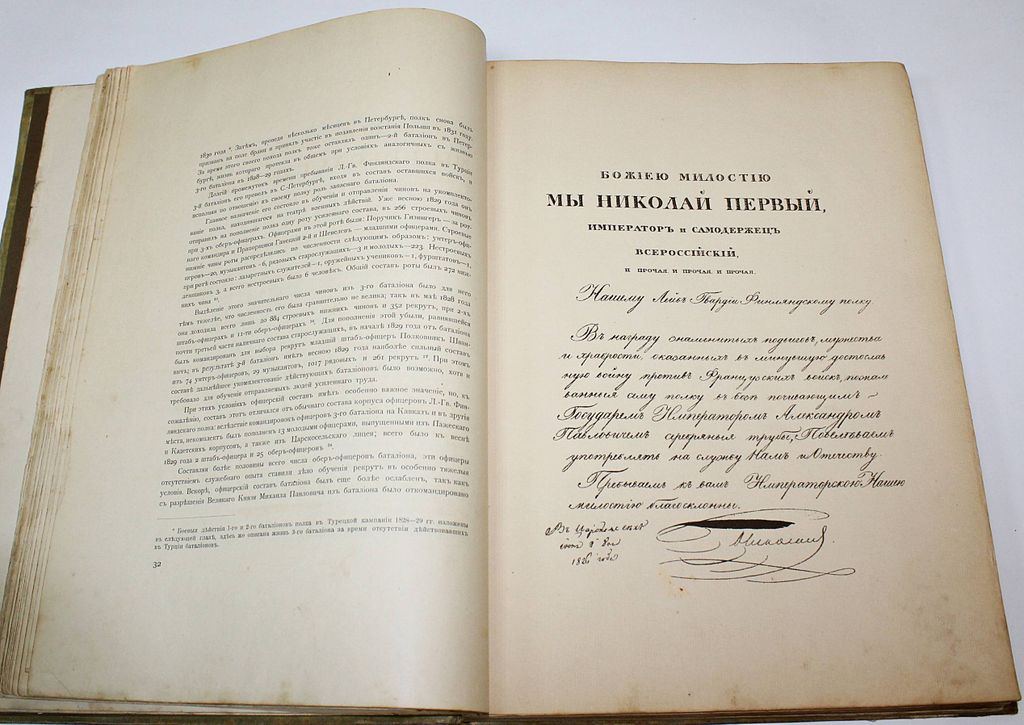 1830 года *. Затѣмъ, проведя нѣсколько мѣсяцевъ въ Петербургѣ, полкъ снова былъ
призванъ на поле брани и принялъ участіе въ подавленіи возстанія Польши въ 1831 году.
За время этого своего похода полкъ тоже оставлялъ одинъ—2-й баталіонъ въ Петер-
бургѣ, жизнь котораго протекла въ общемъ при условіяхъ аналогичныхъ съ жизнью
3-го баталіона въ 1828—29 годахъ.
Долгій промежутокъ времени пребыванія Л.-Гв. Финляндскаго полка въ Турціи
3-й баталіонъ его провелъ въ С.-Петербургѣ, входя въ составъ оставшихся войскъ, и
исполняя по отношенію къ своему полку роль запаснаго баталіона.
Главное назначеніе его состояло въ обученіи и отправленіи чиновъ на укомплекто-
ваніе полка, находившагося на театрѣ военныхъ дѣйствій. Уже весною 1829 года онъ
отправилъ на пополненіе полка одну роту усиленнаго состава, въ 266 строевыхъ чиновъ
при 3-хъ оберъ-офицерахъ. Офицерами въ этой ротѣ были: Поручикъ Гизингеръ— за рот-
наго командира и Прапорщики Ганскій 2-й и Шепелевъ — младшими офицерами. Строевые
нижніе чины роты распредѣлились по численности слѣдующимъ образомъ: унтеръ-офи-
церовъ—20, музыкантовъ—6, рядовыхъ старослужащихъ—3 и молодыхъ—223. Нестроевыхъ
при ротѣ состояло: лазаретныхъ служителей—1, оружейныхъ учениковъ—1, фурштатовъ—1,
деньщиковъ 3, а всего нестроевыхъ было 6 человѣкъ. Общій составъ роты былъ 272 ниж-
нихъ чина
Выдѣленіе этого значительнаго числа чиновъ изъ 3-го баталіона было для него
тѣмъ тяжелѣе, что численность его была сравнительно не велика; такъ въ маѣ 1828 года
она доходила всего лишь до 884 строевыхъ нижнихъ чиновъ и 352 рекрутъ, при 2-хъ
штабъ-офицерахъ и 11-ти оберъ-офицерахъ. Для пополненія этой убыли, равнявшейся
почти третьей части наличнаго состава старослужащихъ, въ началѣ 1829 года отъ баталіона
былъ командированъ для выбора рекрутъ младшій штабъ-офицеръ Полковникъ Шванн-
вичъ; въ результатѣ 3-й баталіонъ имѣлъ весною 1829 года наиболѣе сильный составъ
изъ 74 унтеръ-офицеровъ, 29 музыкантовъ, 1017 рядовыхъ и 261 рекрутъ. При этомъ
составѣ дальнѣйшее укомплектованіе дѣйствующихъ баталіоновъ было возможно, хотя и
требовало для обученія отправляемыхъ людей усиленнаго труда.
При этихъ условіяхъ офицерскій составъ имѣлъ особенно важное значеніе, но, къ
сожалѣнію, составъ этотъ отличался отъ обычнаго состава корпуса офицеровъ Л.-Гв. Фин-
ляндскаго полка: вслѣдствіе командировокъ офицеровъ 3-го баталіона на Кавказъ и въ другія
мѣста, некомплектъ былъ пополненъ 13 молодыми офицерами, выпущенными изъ Пажескаго
и Кадетскихъ корпусовъ, а также изъ Царскосельскаго лицея; всего было къ веснѣ
1829 года 2 штабъ-офицера и 25 оберъ-офицеровъ
Составляя болѣе половины всего числа оберъ-офицеровъ баталіона, эти офицеры
отсутствіемъ служебнаго опыта ставили дѣло обученія рекрутъ въ особенно тяжелыя
условія. Вскорѣ, офицерскій составъ баталіона былъ еще болѣе ослабленъ, такъ какъ
съ разрѣшенія Великаго Князя Михаила Павловича изъ баталіона было откомандировано
* Боевыя дѣйствія 1-го и 2-го баталіоновъ полка въ Турецкой кампаніи 1828—29 гг. изложены
въ слѣдующей главѣ, здѣсь же описана жизнь 3-го баталіона за время отсутствія дѣйствовавшихъ
въ Турціи баталіоновъ.
32
БОЖІЕЮ МИЛОСТІЮ
МЫ НИКОЛАЙ ПЕРВЫЙ,
ИМПЕРАТОРЪ и САМОДЕРЖЕЦЪ
ВСЕРОССІЙСКІЙ,
И ПРОЧАЯ, И ПРОЧАЯ, И ПРОЧАЯ.
Нашему Лейбъ Гвардіи Финляндскому полку.
Въ награду знаменитыхъ подвиговъ, мужества
и храбрости, оказанныхъ въ минувшую достослав
ную войну противъ Французскихъ войскъ, пожало
ванныя сему полку въ Бозѣ почивающимъ
Государемъ Императоромъ Александромъ
Павловичемъ серебряныя трубы, Повелѣваемъ
употреблять на службу Намъ и Отечеству.
Пребываемъ къ вамъ Императорскою Нашею
милостію благосклонны.
Въ Царскомъ селѣ
1826 года
Николай